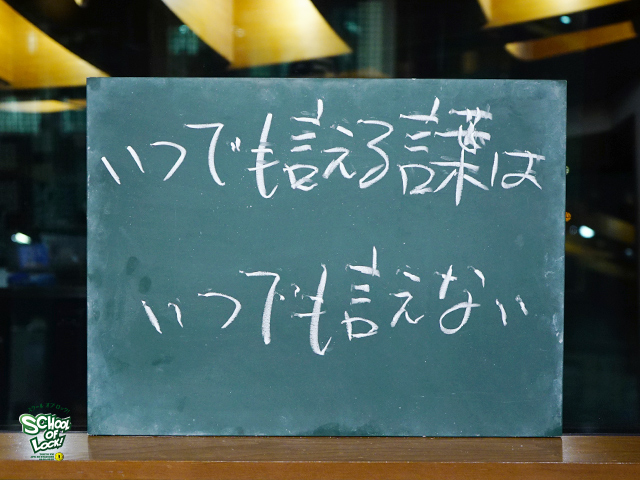 いつでも言える言葉は
いつでも言えない
SCHOOL
OF
LOCK!